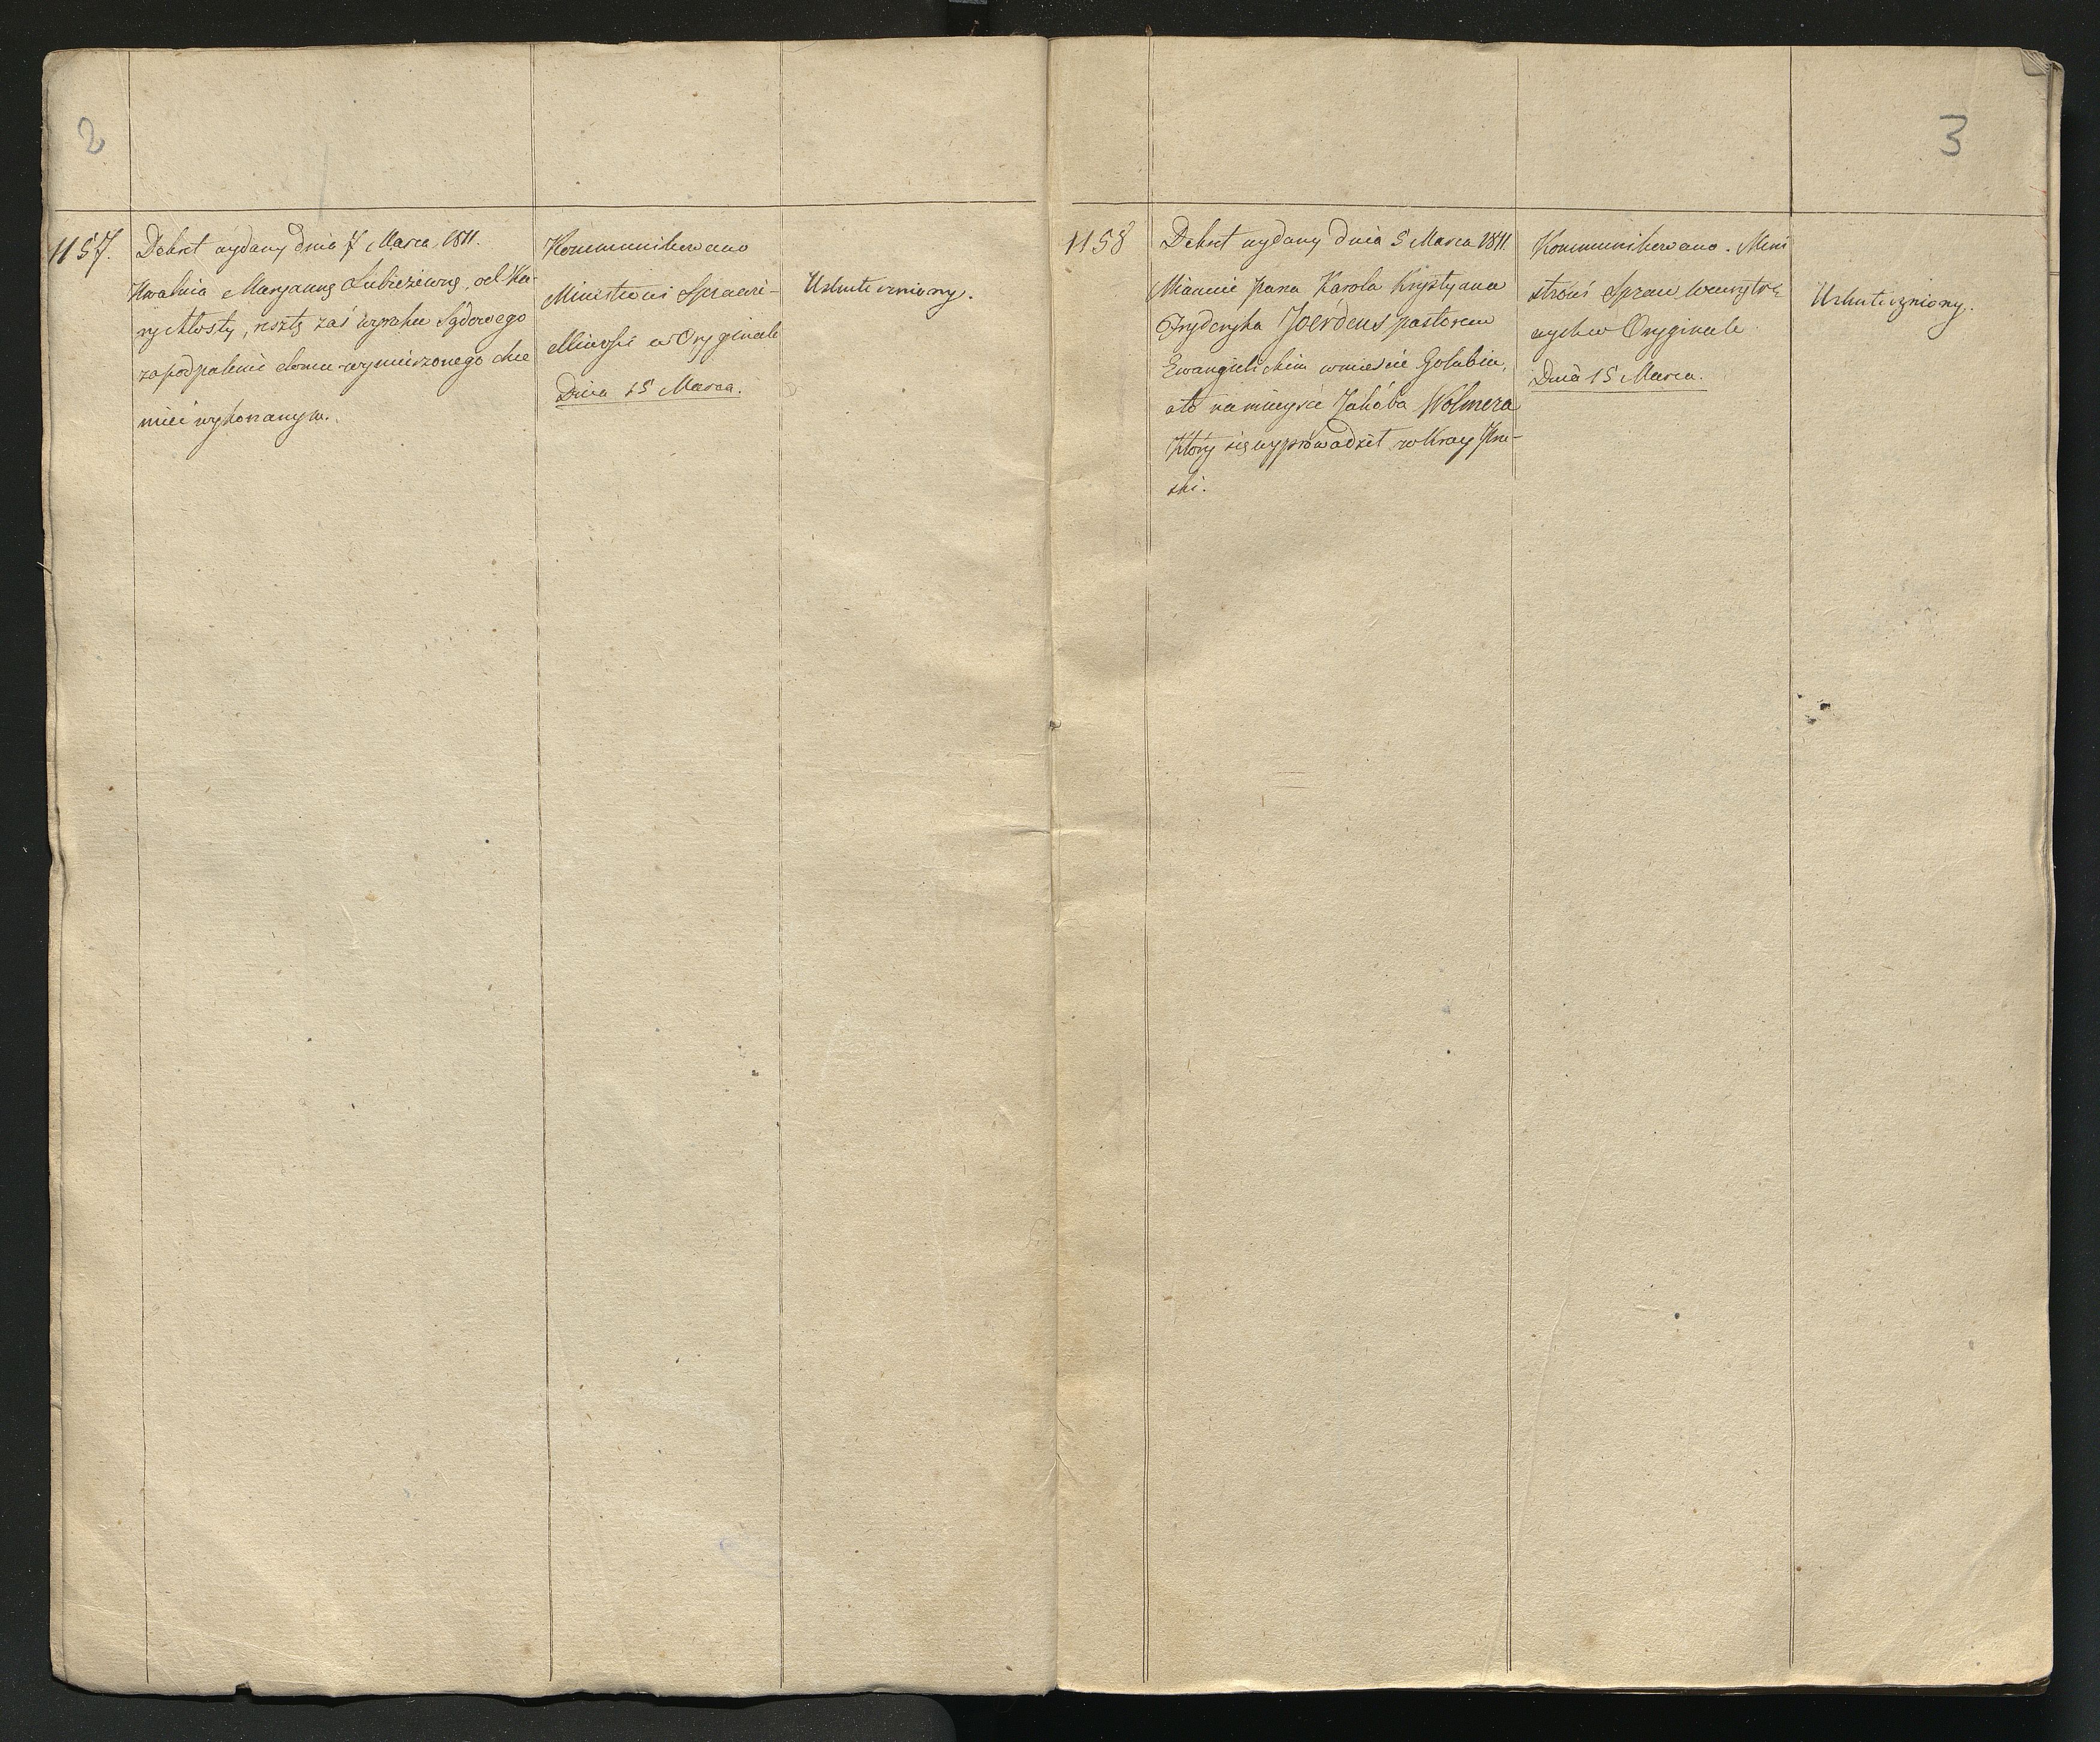 2
1157.
Dekret wydany dnia 7 Marca 1811.
Uwalnia Maryannę Lubieziewnę, od Ka-
ry chłosty, resztę zaś wyroku Sądowego
za podpalenie domu wymierzonego chce
mieć wykonanym.
Kommunikowano
Ministrowi Sprawie-
dliwości w Oryginale
Dnia 15 Marca.
Uskuteczniony.
3
1158
Dekret wydany dnia 5 Marca 1811
Mianuie Pana Karola Krystyana
Fryderyka Joerdens pastorem
Ewangielickim w mieście Golubiu,
a to na mieysce Jakóba Wolmera
Który się wyprowadził w Kray Pru-
ski.
Kommunikowano Mini
strowi Spraw Wewnętrz
nych w Oryginale
Dnia 15 Marca.
Uskuteczniony.